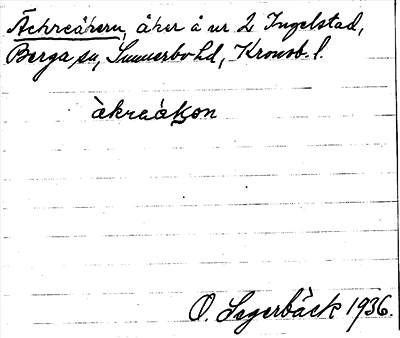 Äckreåkern, åker å nr 2 Ingelstad,
Berga sn, Sunnerbo hd, Kronob. l.
àkraákon
O. Segerbäck 1936.